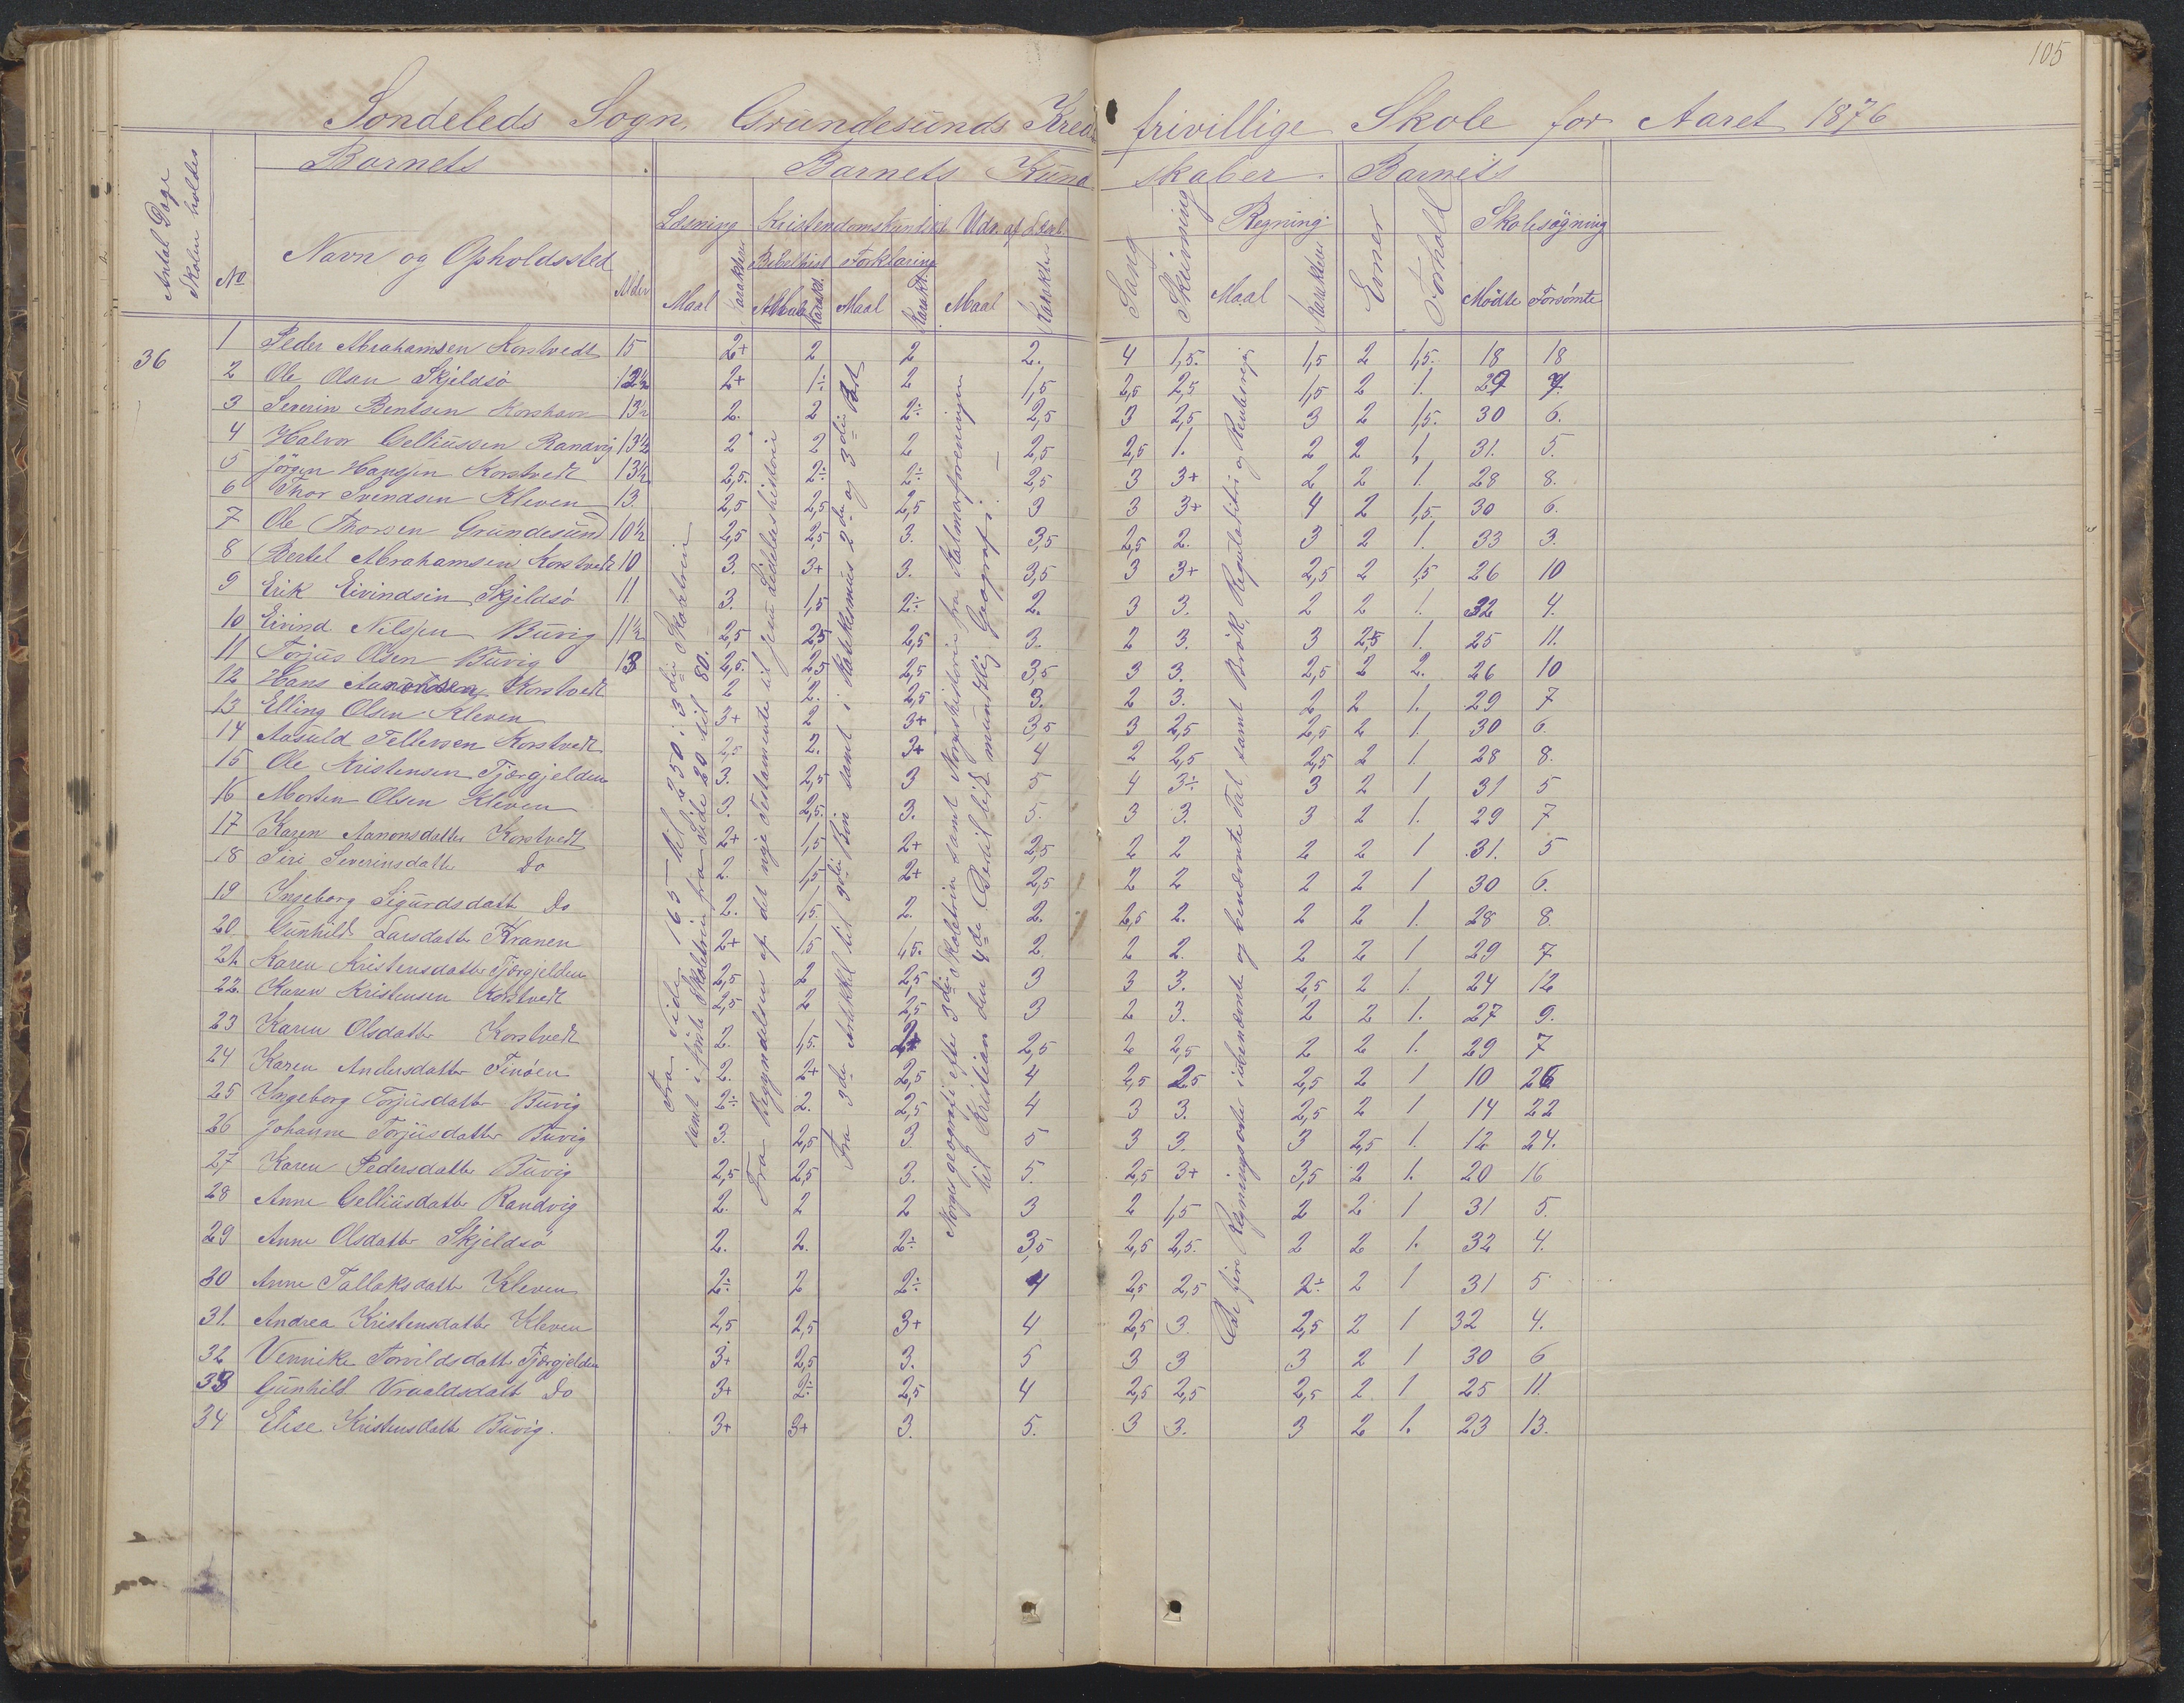 105
Sondeleds Sogn, Grundesunds Kreds frivillige Skole for Aaret 1876
Antal Dage Skolen holdtes
No
Barnets
Barnets Kundskaber.
Barnets
Navn og Opholdssted
Alder
Læsning
Kristendomskundskab
Udv. af Læseb.
Sang
Skrivning
Regning
Evner
Forhold
Skolesøgning
Bibelhist
Forklaring
Maal Karakter Maal Karakt. Maal Karakt. Maal Karakter
Maal Karakter
Mødte Forsømte
36
1 Peder Abrahamsen Korstvedt 15 2+ 2 2 2. 4 1,5. 1,5 2 1,5. 18 18
2 Ole Olsen Skjeldsö 12½ 2+ 1÷ 2 1,5 2,5 2,5 1,5 2 1. 29 7.
3 Severin Bentsen Korshavn 13½ 2. 2 2÷ 2,5 3 2,5 3 2 1,5. 30 6.
4 Halvor Gelliussen Randvig 13½ 2 2 2 2,5 2,5 1. 2 2 1, 31. 5.
5 Jörgen Hanssen Korstvedt 13½ 2,5. 2÷ 2÷ 2,5 3 3+ 2 2 1. 28 8.
6 Thor Svendsen Kleven 13. 2,5 2,5 2,5 3 3 3+ 4 2 1,5. 30 6.
7 Ole Thorsen Grundesund 10½ 2,5 2,5 3. 3,5 2,5 2. 3 2 1. 33 3.
8 Bertel Abrahamsen Korstvedt 10 3. 3+ 3. 3,5 3 3+ 2,5 2 1,5 26 10
9 Erik Eivindsen Skjeldsö 11 3. 1,5 2÷ 2. 3 3. 2 2 1. 32 4.
10 Eivind Nilssen Buvig 11½ 2,5 2,5 2,5 3. 2 3. 3 2,5 1. 25 11.
11 Torjus Olsen Buvig 13 2,5. 2,5 2,5 3,5 3 3. 2,5 2 2. 26 10
12 Hans Aanonsen Korstvedt 2 2. 2,5 3. 2 3. 2 2 1. 29 7
13 Elling Olsen Kleven 3+ 2 3+ 3,5 3 2,5 2,5 2 1. 30 6.
14 Aasuld Tellevsen Korstvedt 2,5 2. 3+ 4 2 2,5 2,5 2 1 28 8.
15 Ole Kristensen Tjørgjelden 3. 2,5 3 5 4 3÷ 3 2 1 31 5
16 Morten Olsen Kleven 3. 2,5. 3. 5. 3 3. 3 2 1. 29 7
17 Karen Aanonsdatter Korstvedt 2+ 1,5 2+ 2,5 2 2 2 2 1 31. 5
18 Siri Severinsdatt Do 2. 1,5 2+ 2,5 2 2 2 2 1 30 6.
19 Ingeborg Sigurdsdatt Do 2. 1,5. 2. 2. 2,5 2. 2 2 1. 28 8.
20 Gunhild Larsdatter Kranen 2+ 1,5 1,5. 2. 2 2. 2 2 1 29 7
21 Karen Kristensdatter Tjørgjelden 2,5 2 2,5 3 3 3. 2,5 2 1. 24 12
22. Karen Kristensen Korstvedt 2,5 2 2,5 3 2 3. 2 2 1. 27 9.
23 Karen Olsdatter Korstvedt 2. 1,5. 2+ 2,5 2 2,5 2 2 1. 29 7
24 Karen Andersdatter Finöen 2. 2+ 2,5 4 2,5 2,5 2,5 2 1 10 26
25 Ingeborg Torjusdatt Buvig 2÷ 2. 2,5 4 3 3. 2,5 2 1 14 22
26 Johanne Torjusdatter Buvig 3. 2,5 3 5 3 3. 3 2,5 1. 12 24.
27 Karen Pedersdatter Buvig 2,5 2,5 3. 5. 2,5 3+ 3,5 2 1. 20 16
28 Anne Gelliusdatter Randvig 2. 2 2 3 2 1,5 2 2 1 31 5.
29 Anne Olsdatter Skjeldsö 2. 2. 2÷ 3,5 2,5 2,5. 2 2 1. 32 4.
30 Anne Tallaksdatt Kleven 2÷ 2 2÷ 4 2,5 2,5 2÷ 2 1 31 5
31. Andrea Kristensdatter Kleven 2,5 2,5 3+ 4 2,5 3. 2,5 2 1 32 4.
32 Vennike Torvildsdatt Tjørgjelden 3+ 2,5 3. 5 3 3 3 2 1 30 6
33 Gunhild Vraaldsdatt Do 3+ 2÷ 2,5 4 2,5 2,5 2,5 2 1 25 11.
34 Elise Kristensdatt Buvig. 3+ 3+ 3. 5. 3 3. 3 2 1. 23 13.
Fra Side 165 til 250 i 3die Skoletrin
samt i første Skoletrin fra Side 20 til 80.
Fra Begyndelsen af det nye Testamente til Jesu Lidelseshistorie
Fra 3die Artikkel til 3die Bøn samt i Katekismus 2den og 3die Part
Norges geografi efter 3die Skoletrin samt Norgeshistorie fra Kalmarforeningen
til Kristian den 4de. Bertil lidt mundtlig Geografi. —
De fire Regningsarter i ubenævnte og benævnte Tal, samt Brök, Regulatetri og Rentersregn